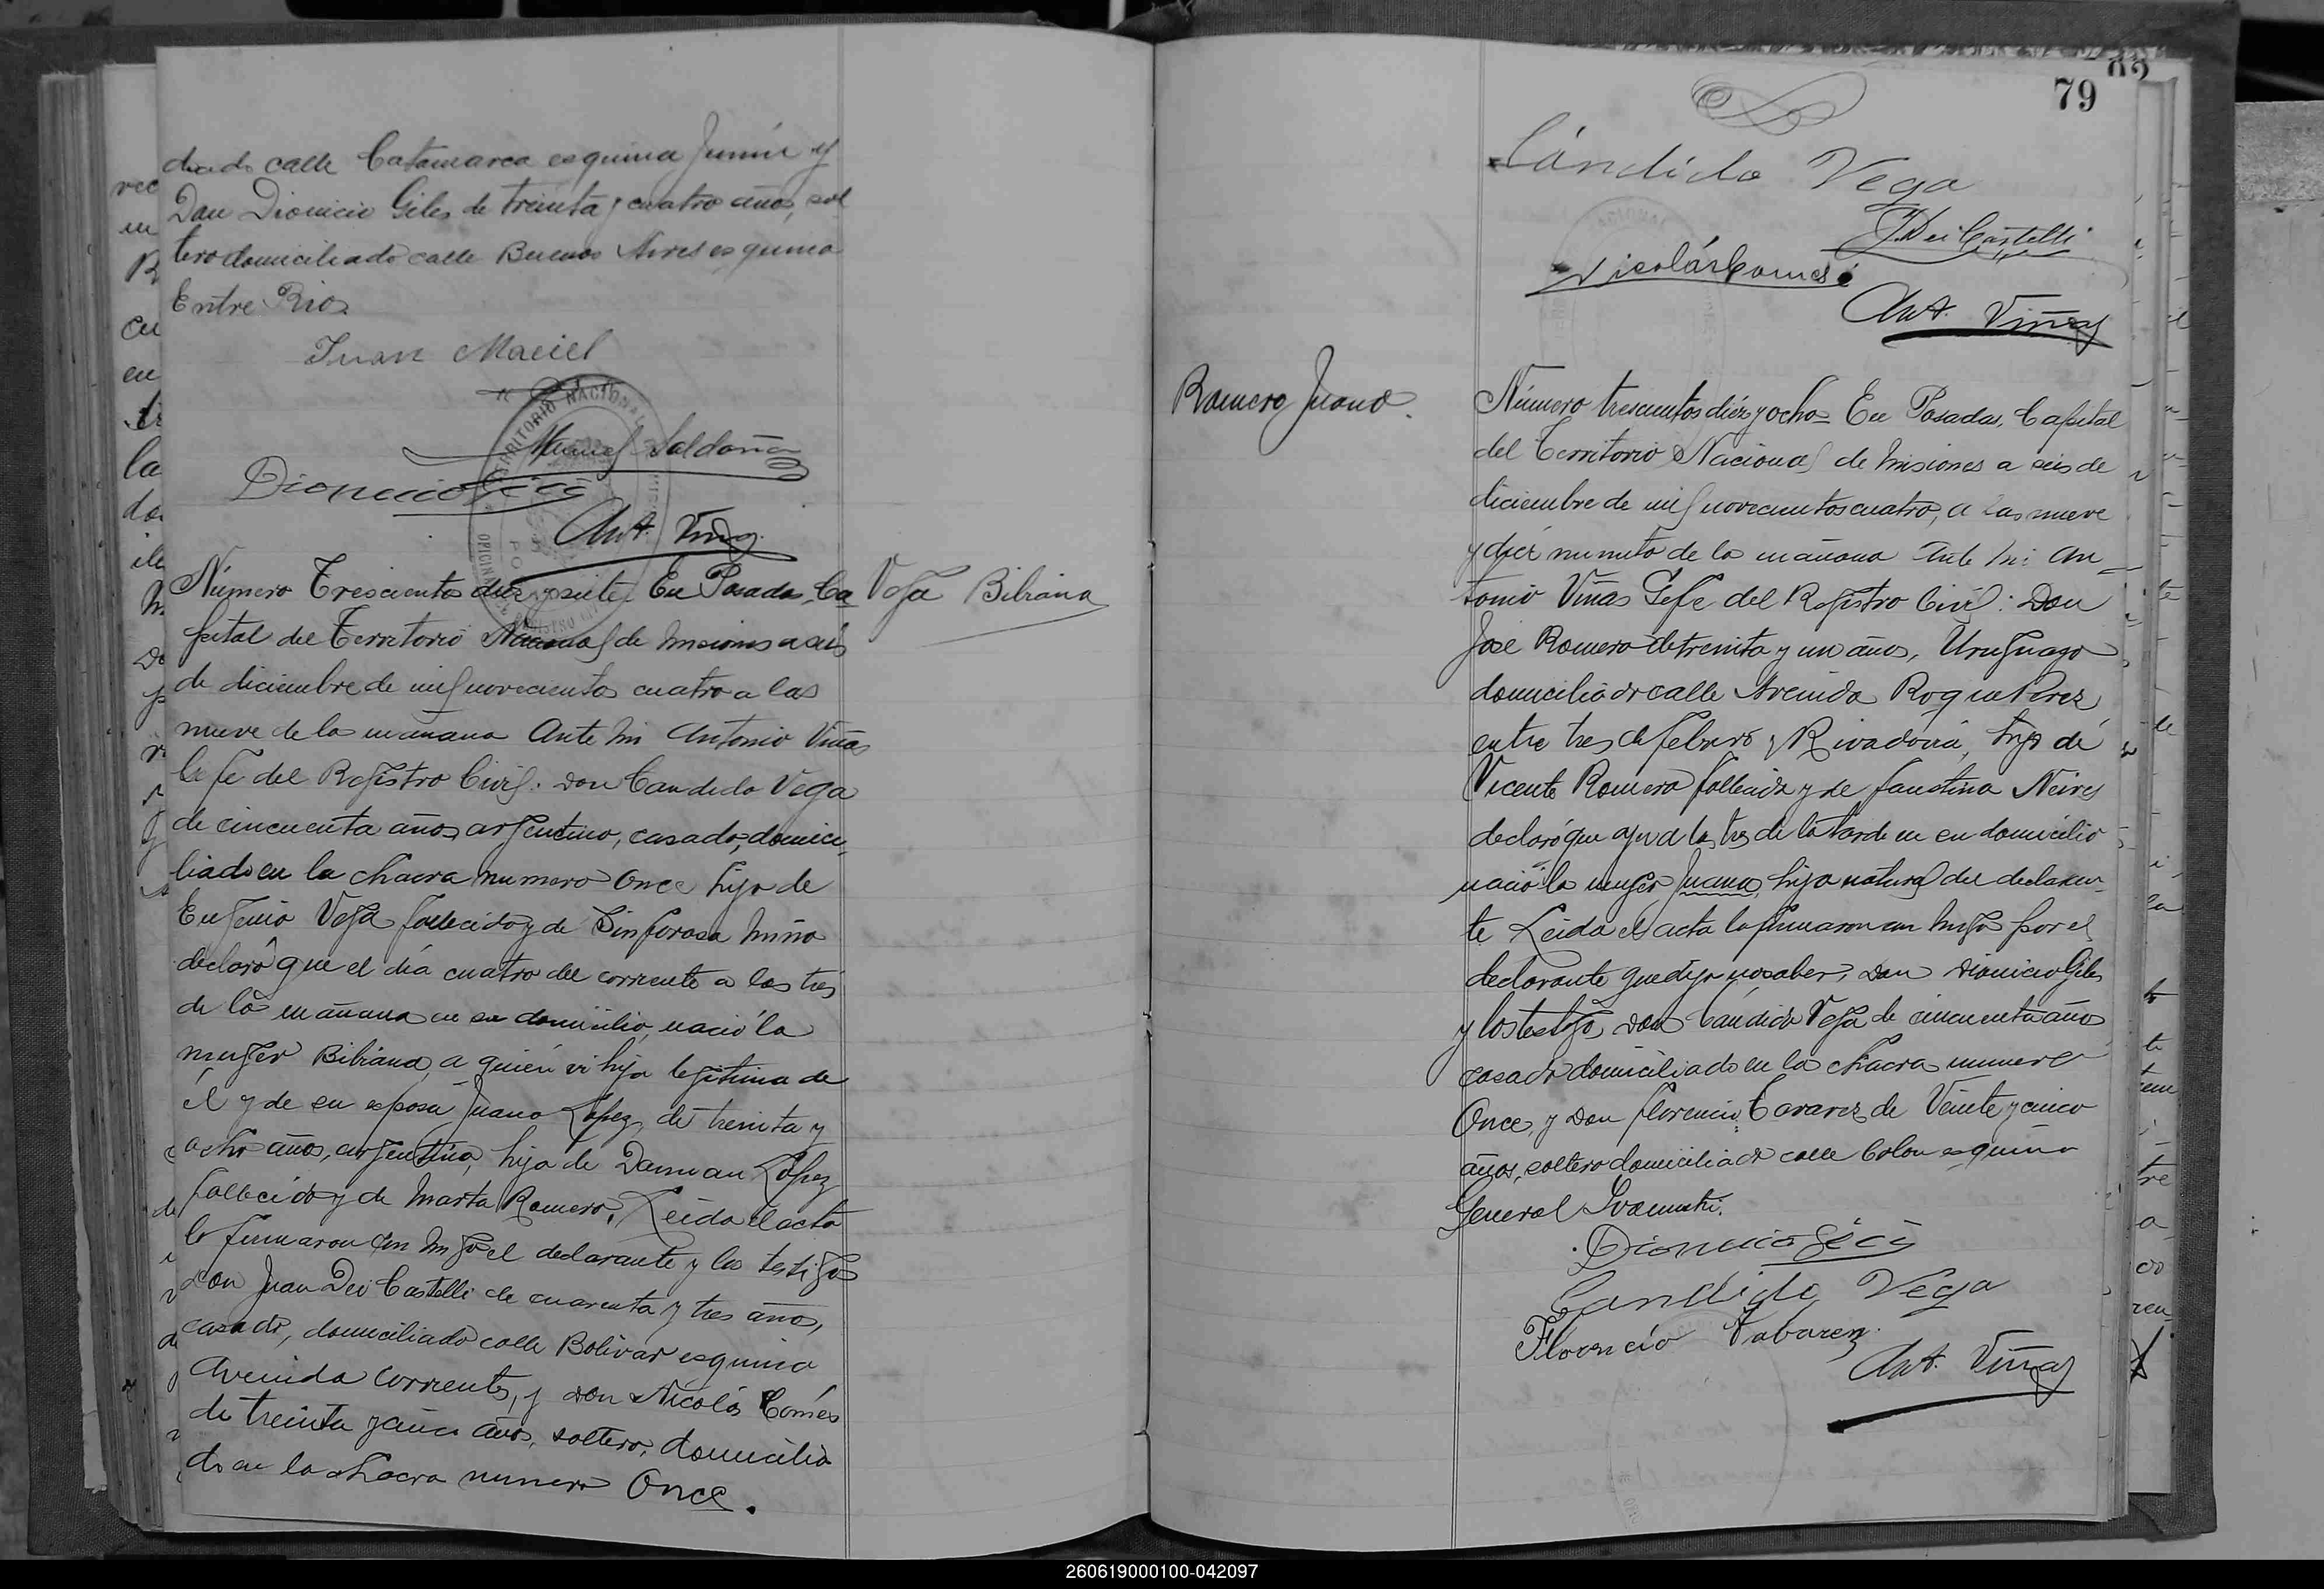 ciado calle Catamarca esquina Junín y
Don Dionicio Giles de treinta y cuatro años, sol
tero domiciliado calle Buenos Aires esquina
Entre Rios.
Juan Maciel
Manuel Saldaña
Dionicio Giles
Ant. Viñas
Vega Bibiana
Número Trescientos diez y siete. En Posadas, Ca
pital del Territorio Nacional de Misiones a seis
de diciembre de mil novecientos cuatro a las
nueve de la mañana Ante mi Antonio Viñas
Gefe del Registro Civil: Don Candido Vega
de cincuenta años, argentino, casado, domici
liado en la chacra numero Once hijo de
Eugenio Vega fallecido y de Sinforosa Miño
declaró que el día cuatro del corriente a las tres
de la mañana en su domicilio, nació la
muger Bibiana, a quién vi hija legitima de
él y de su esposa Juana López, de treinta y
ocho años, argentina, hija de Damian López
fallecido y de Marta Romero. Leida el acta
la firmaron con migo el declarante y los testigos
Don Juan Dei Castelli de cuarenta y tres años,
casado, domiciliado calle Bolivar esquina
Avenida Corrientes, y don Nicolás Comes
de treinta y cinco años, soltero, domicilia
do en la chacra numero Once.
79
Cándido Vega
J. Dei Castelli
Nicolás Comes
Ant. Viñas
Romero Juana.
Número trescientos diéz y ocho= En Posadas, Capital
del Territorio Nacional de Misiones a seis de
diciembre de mil novecientos cuatro, a las nueve
y diez minuto de la mañana Ante Mi: An_
tonio Viñas Gefe del Registro Civil: Don
José Romero de treinta y un años, Uruguayo
domiciliado calle Avenida Roque Perez
entre tres de febrero y Rivadavia, hijo de
Vicente Romero fallecido y de Faustina Neires
declaró que ayer a las tres de la tarde en su domicilio
nació la muger Juana, hija natural del declaran-
te Leida el acta la firmaron con migo por el
declarante que dijo no saber, Don Dionicio Giles
y los testigos, Don Cándido Vega de cincuenta años
casado domiciliado en la chacra numero
Once, y Don Florencio Tavarez de Veinte y cinco
años, soltero domiciliado calle Colon esquina
General
Dionicio Giles
Candido Vega
Florencio Tabarez
Ant. Viñas
260619000100-042097